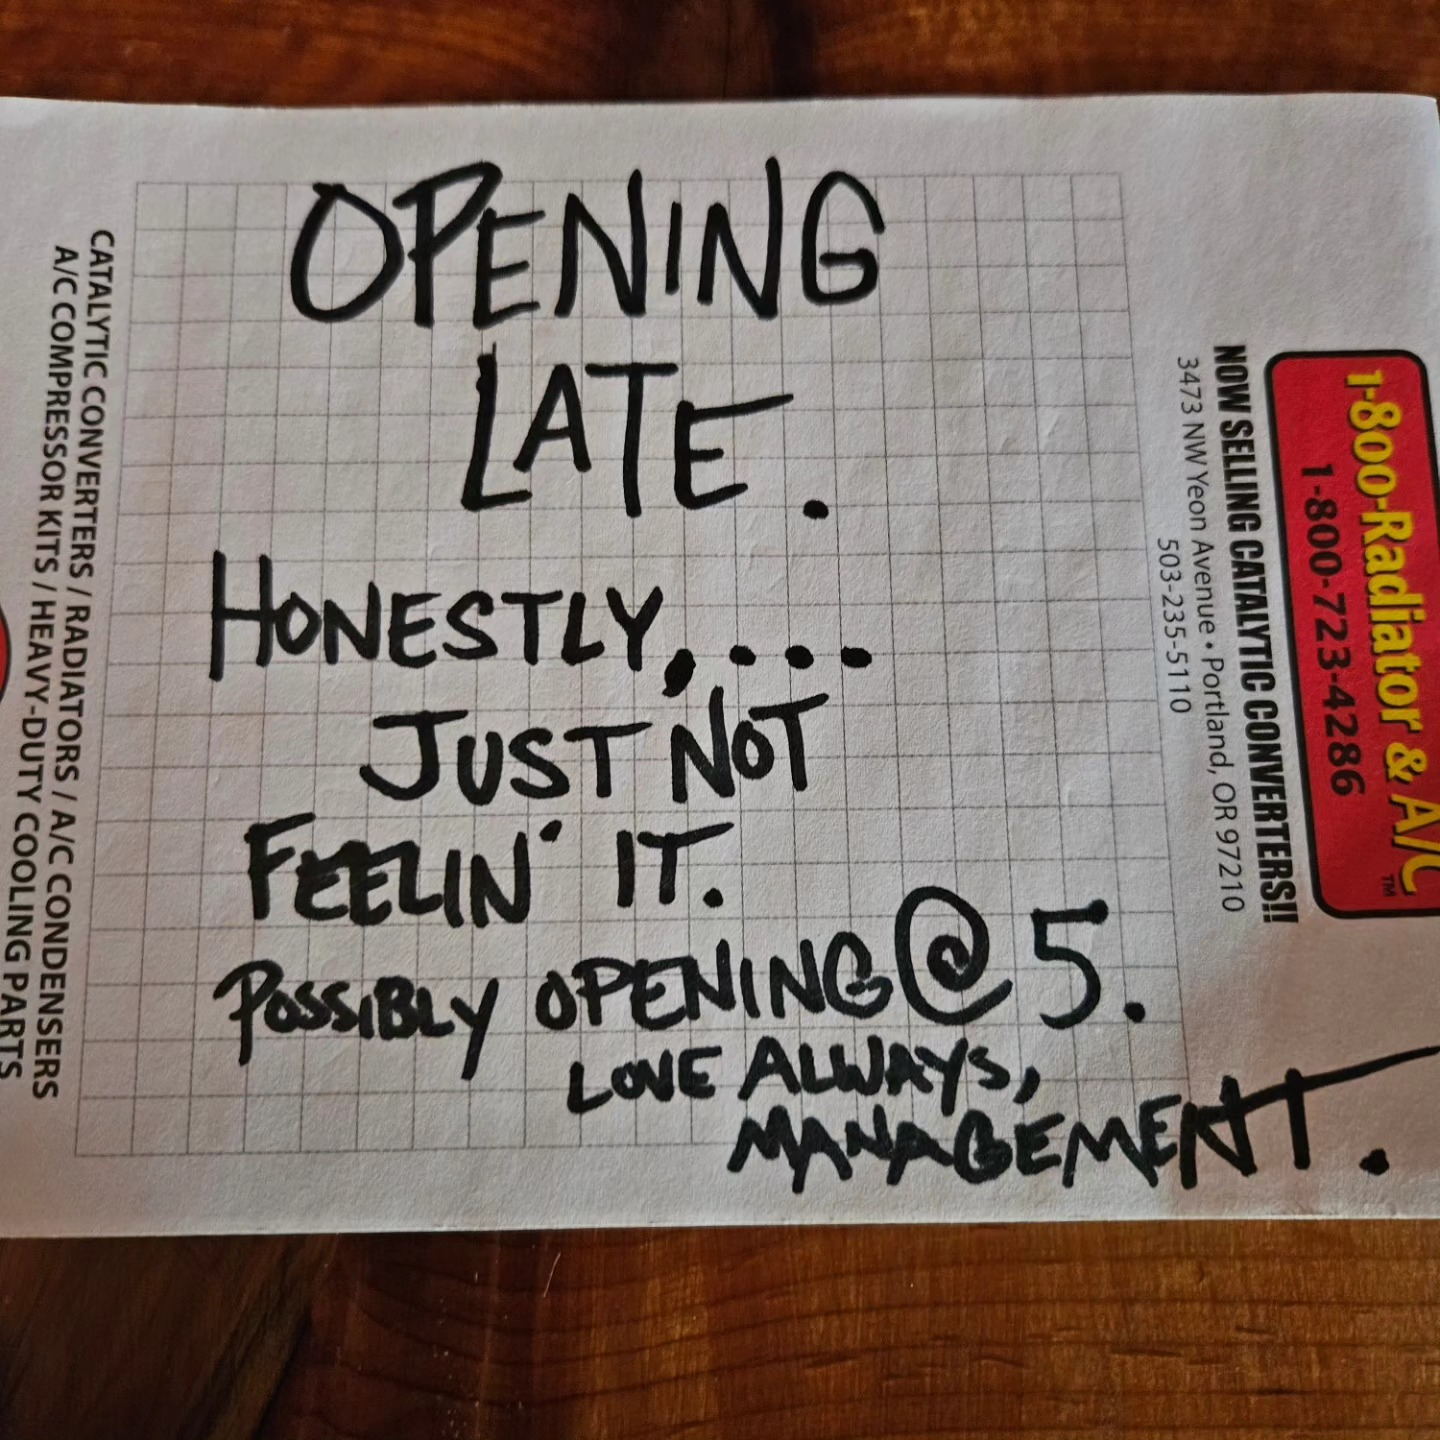 OPENING
LATE.
HONESTLY,...
JUST NOT
FEELIN' IT.
POSSIBLY OPENING @ 5.
LOVE ALWAYS,
MANAGEMENT.
1-800-Radiator & A/C™
1-800-723-4286
NOW SELLING CATALYTIC CONVERTERS!!
3473 NW Yeon Avenue • Portland, OR 97210
503-235-5110
CATALYTIC CONVERTERS / RADIATORS / A/C CONDENSERS
A/C COMPRESSOR KITS / HEAVY-DUTY COOLING PARTS